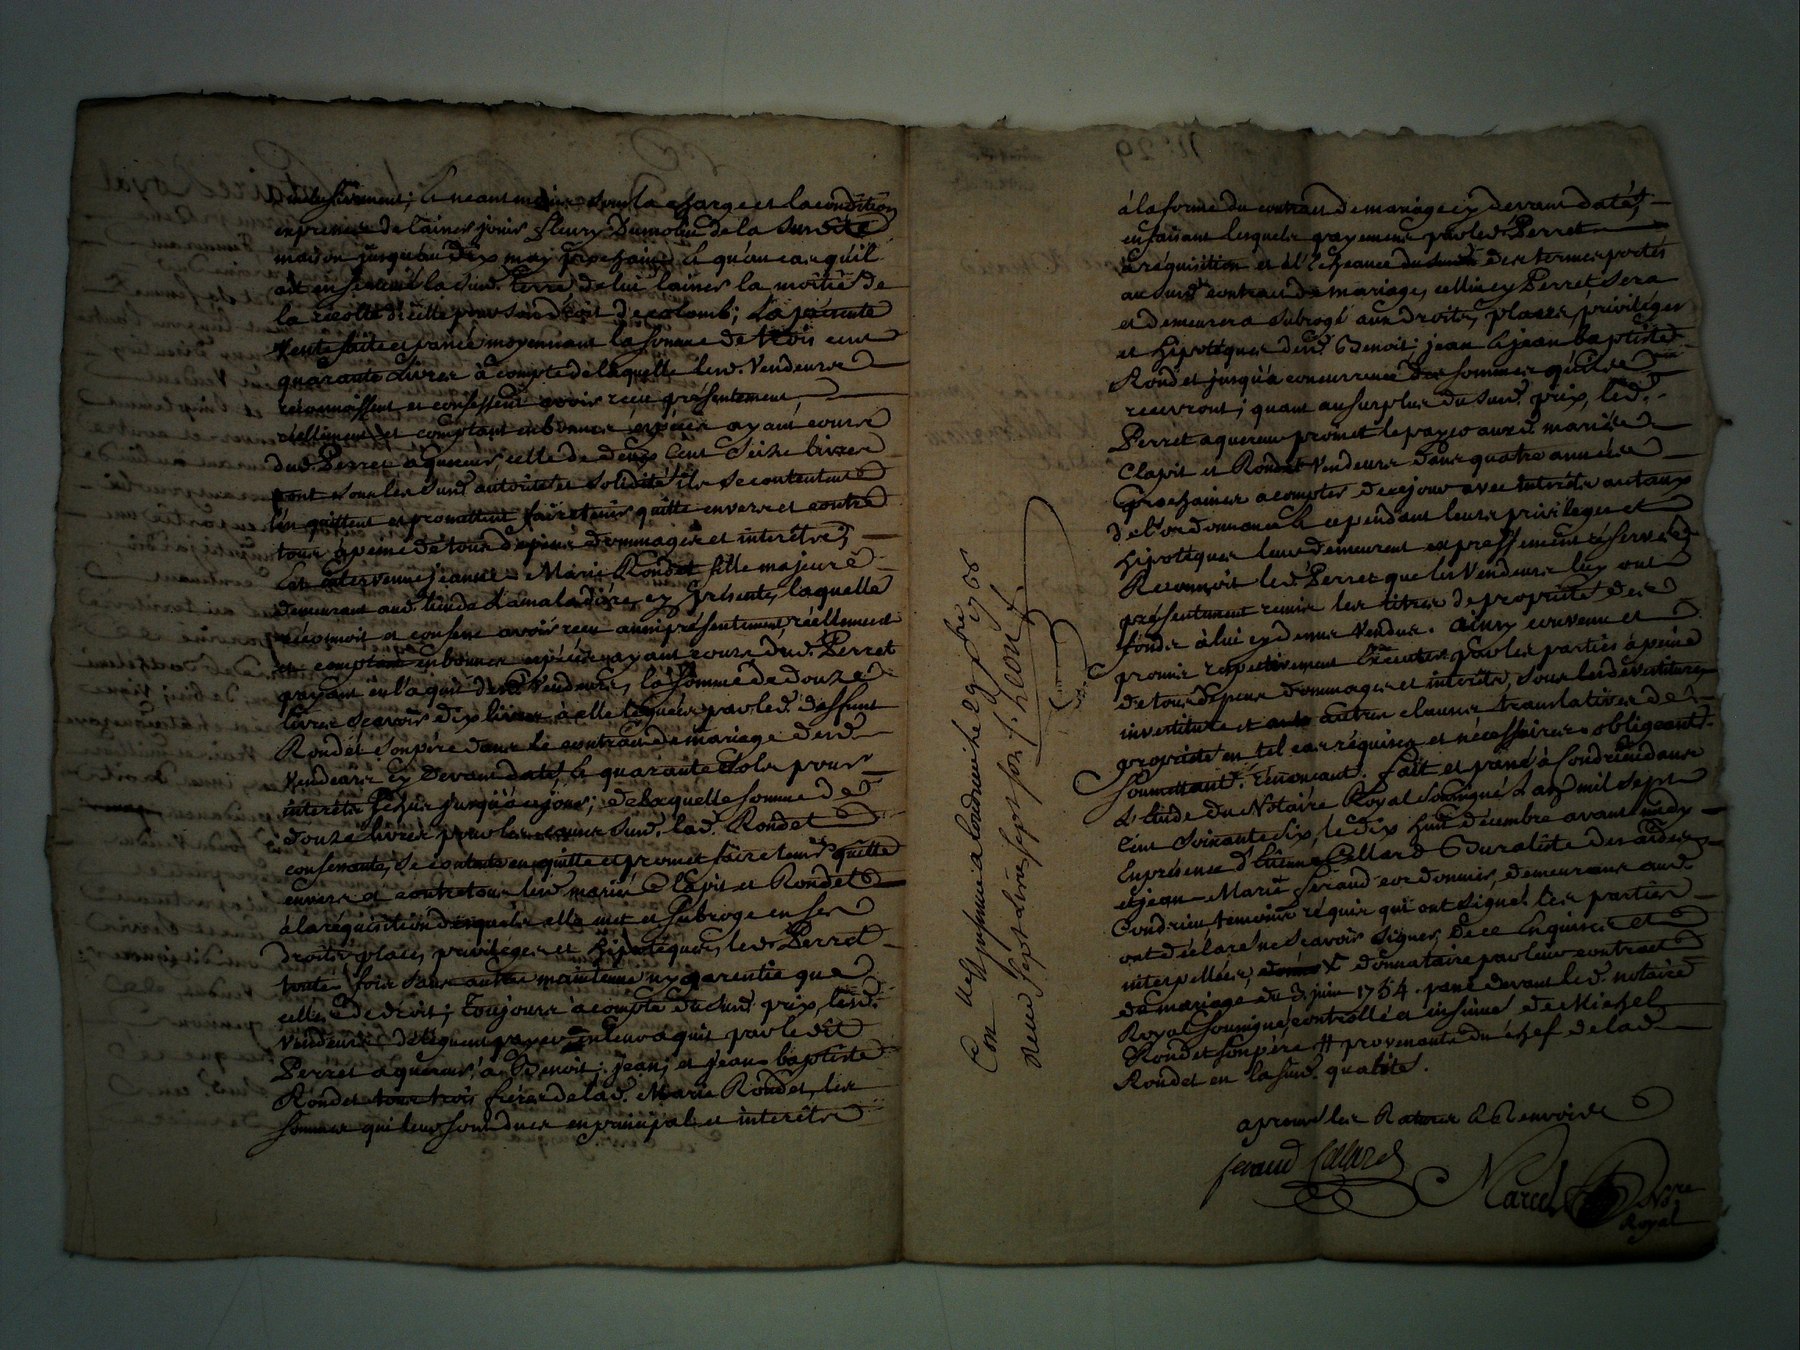 sous la charge et la condition
expresse de laisser jouir fleury Dumolin de la susditte
maison jusqu'au dix may prochain, et qu'au cas qu'il
ait ensemencé la susd. terre de lui laisser la moitié de
la récolte d'icelle pour son droit de colomb; La présente
Vente faitte et passée moyennant la somme de trois cent
quarante Livres à compte de laquelle lesd. Vendeurs
réconnoissent et confessent avoir reçu présentement,
réellement et comptant en bonnes espèces ayant cours
dud. Perret aquereur, celle de deux Cent Seize livres
dont sous les susd. autorité et solidité ils se contentent
l'en quittent et promettent faire tenir quitte envers et contre
tous à peine de tous dépens dommages et interêtz;
Est intervenue jeanne Marie Rondet fille majeure
demeurant aud. lieu de Lamaladière, icy présente, laquelle
réconnoit et confesse avoir reçu aussi présentement, réellement
et comptant en bonnes espèces ayant cours dud. Perret
payant en l'aquit desd. Vendeurs, la somme de douze
livres Scavoir dix livres à elle léguées par led. deffunt
Rondet son père dans le contract de mariage desd.
Vendeurs cy devant daté, et quarante sols pour
interêts échus jusqu'à ce jour; de laquelle somme de
douze livres pour les causes susd. lad. Rondet
consenante, se contente en quitte et promet faire tenir quitte
envers et contre tous lesd. mariés Clapit et Rondet
à la réquisition desquels elle met et subroge en ses
droits, place, privileges et hipotèques, led. Perret
toutes fois sans autre maintenue ny garentie que
celle de droit; toujours à compte du susd. prix, lesd.
Vendeurs délèguent payer en leur aquit par le dit
Perret aquereur, à Benoit, jean, et jean baptiste
Rondet tous trois frères de lad. Marie Rondet, les
sommes qui leur sont dues en principal et interêts
Con.lé et insinué à Condrieu le 29 xbre 1766
Reçu Sept livres sept sols f. Leon
à la forme du contract de mariage cy devant daté,
en faisant lesquels payements par led. Perret
à réquisition et à l'échéance des termes portés
au susd. contract de mariage, cellui cy Perret sera
et demeurera subrogé aux droits, places, privileges
et hipotèques desd. Benoit, jean et jean baptiste
Rondet jusqu'à concurrence des sommes qu'ils
recevront; quant au surplus du susd. prix, led.
Perret aquereur promet le payer auxd. mariés
Clapit et Rondet Vendeurs dans quatre années
prochaines à compter de ce jour avec interêts au taux
de l'ordonnance et cependant leurs privileges et
hipotèques leur demeurent expressement réservés
Reconnoit led. Perret que les Vendeurs luy ont
présentement remis les titres de propriété des
fonds à lui cy dessus vendus. ainsy convenu et
promis respectivement exécuter par les parties à peine
de tous dépens dommages et interêts, sous les devestitures,
investiture et autres clauses translatives de
propriété en tel cas réquises et nécéssaires. obligeant.
soumettant. rénonçant. Fait et passé à Condrieu dans
L'Etude du Notaire Royal soussigné L'an mil sept
Cent Soixante Six, le dix huit décembre avant midy
En présence d'Etienne Collard Buraliste des aides
et jean Marie feraud cordonnier, demeurant aud.
Condrieu, temoins réquis qui ont signé. les parties
ont déclaré ne scavoir signer, de ce Enquises et
interpellées, X donnataire par leur contract
de mariage du 3. juin 1754. passé devant led. notaire
Royal soussigné, controllé et insinué de Michel
Rondet son père # provenants du chef de lad.
Rondet en la susd. qualité.
aprouvé les Ratures et Renvois
feraud Collard
Marcel Nore
Royal